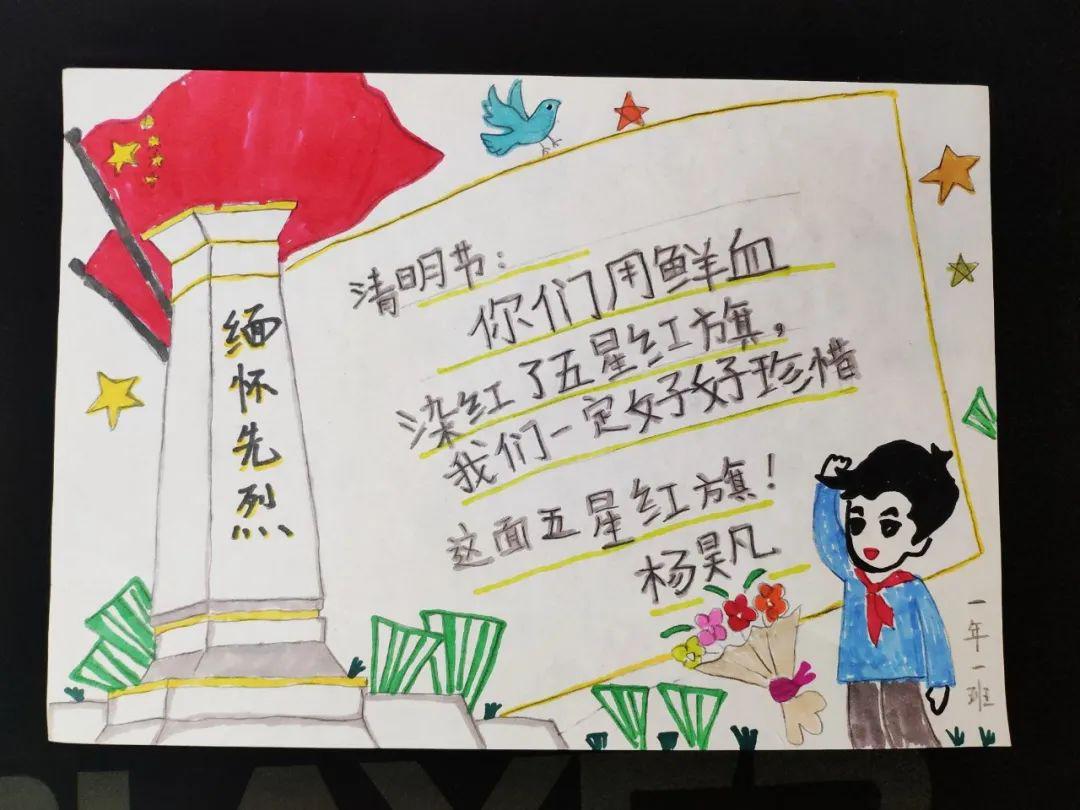 缅怀先烈
清明节：
你们用鲜血
染红了五星红旗，
我们一定好好珍惜
这面五星红旗！
杨昊凡
一年一班